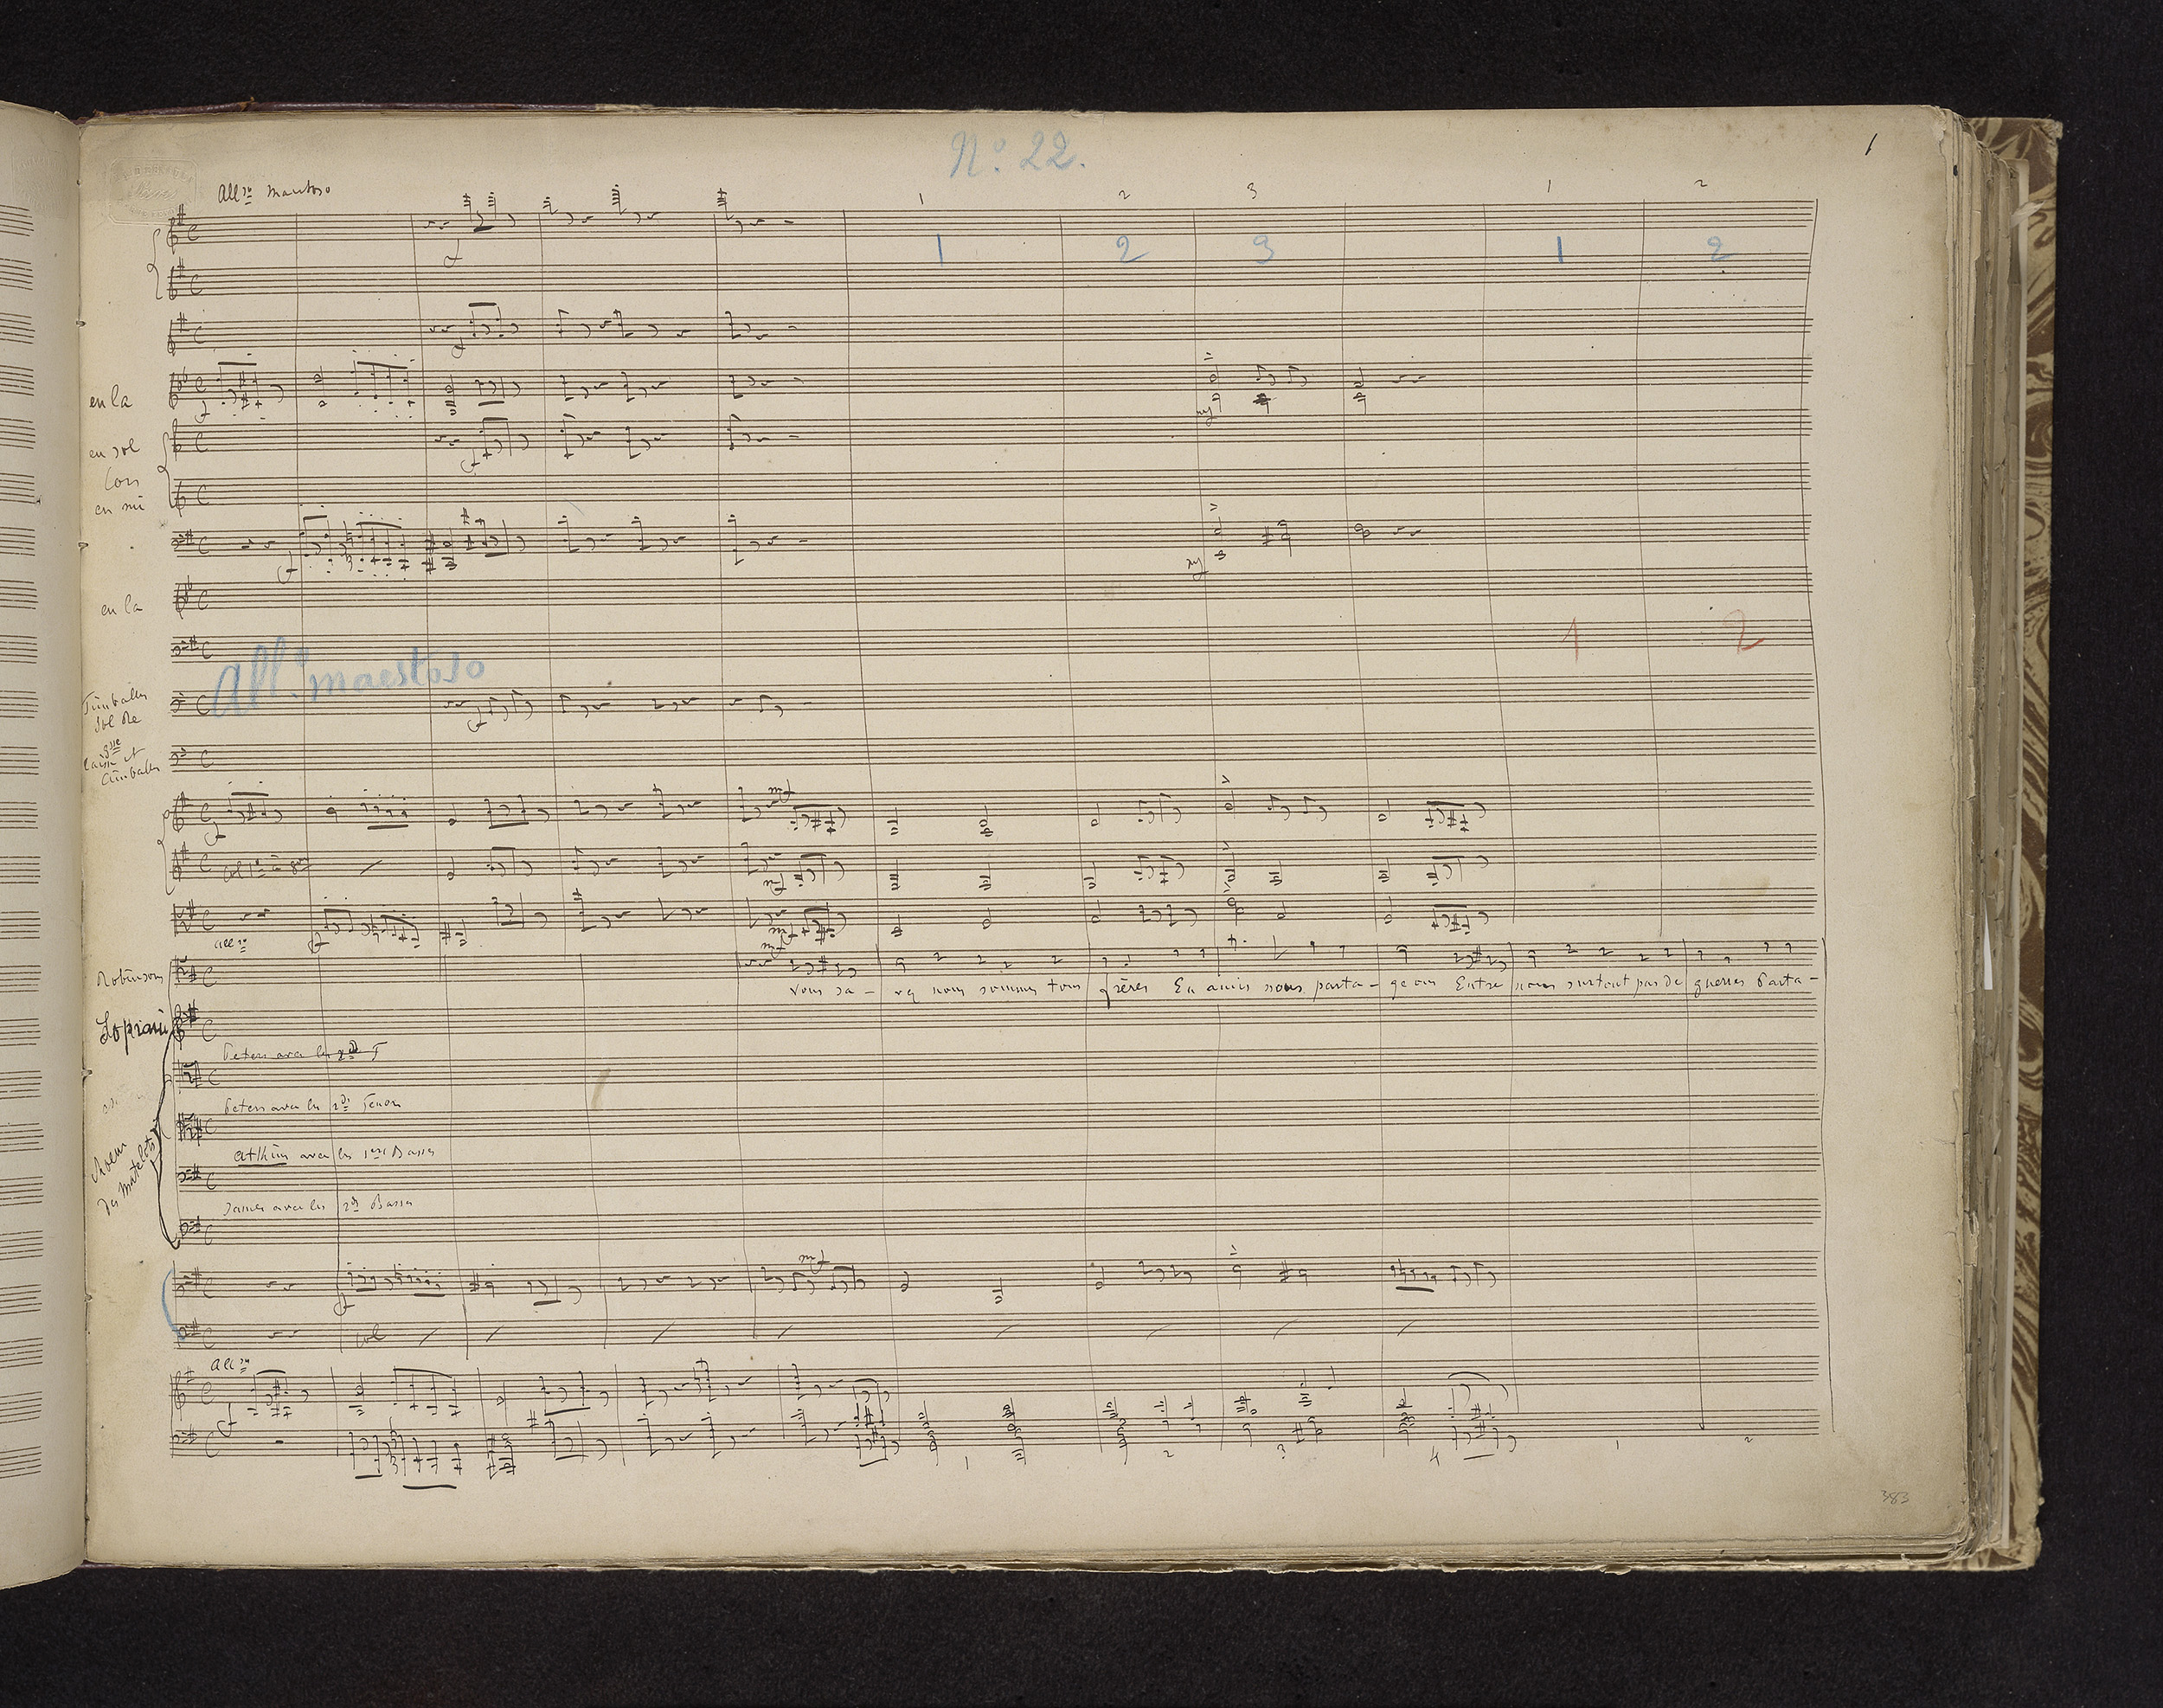 N.º 22.
1
All.º maestoso
1 2 3 1 2
1 2 3 1 2
en la
en sol
Cors
en mi
en la
1 2
All.º maestoso
Timballes
sol Re
gsse
Caisse et
Cimballes
mf
all.º
mf
Robinson
Vous sa - vez nous sommes tous frères En amis nous parta - geons Entre nous surtout pas de guerres Parta -
Soprani
Peters avec les 2ds T
Peters avec les 2ds Tenors
Choeur
des Matelots
Atkins avec les 1ères Basses
James avec les 2des Basses
mf
col
All.º
1 2 3 4 1 2
383